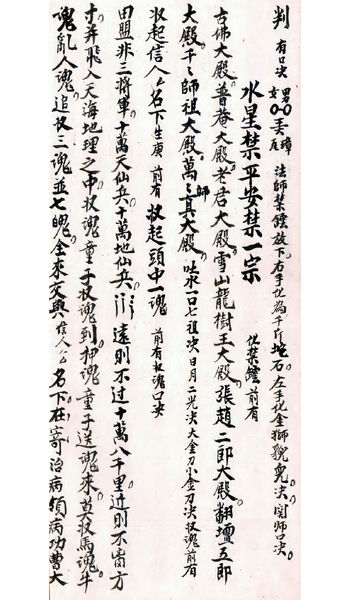 判 有口決 男女 法師禁鏢放下右手化為千斤 石左手化金獅 決関師口決
水星禁平安禁一宗 化禁鏢前有
古佛大殿普庵大殿老君大殿雪山龍樹王大殿張趙二郎大殿翻壇五郎
大殿千千師祖大殿萬萬師真大殿 吐水一口七祖決日月二光決大金刀小金刀決收魂前有
收起信人厶名下生庚 前有 收起頭中一魂 前有收魂口決
田盟非三將軍十萬天仙兵十萬地仙兵 遠則不过十萬八千里近則不 方
寸并飛入天海地理之中收魂童子收魂到押魂童子送魂來莫收馬魂牛
魂亂人魂追收三魂並七魄全來交與信人厶名下在 治病領病功曹大